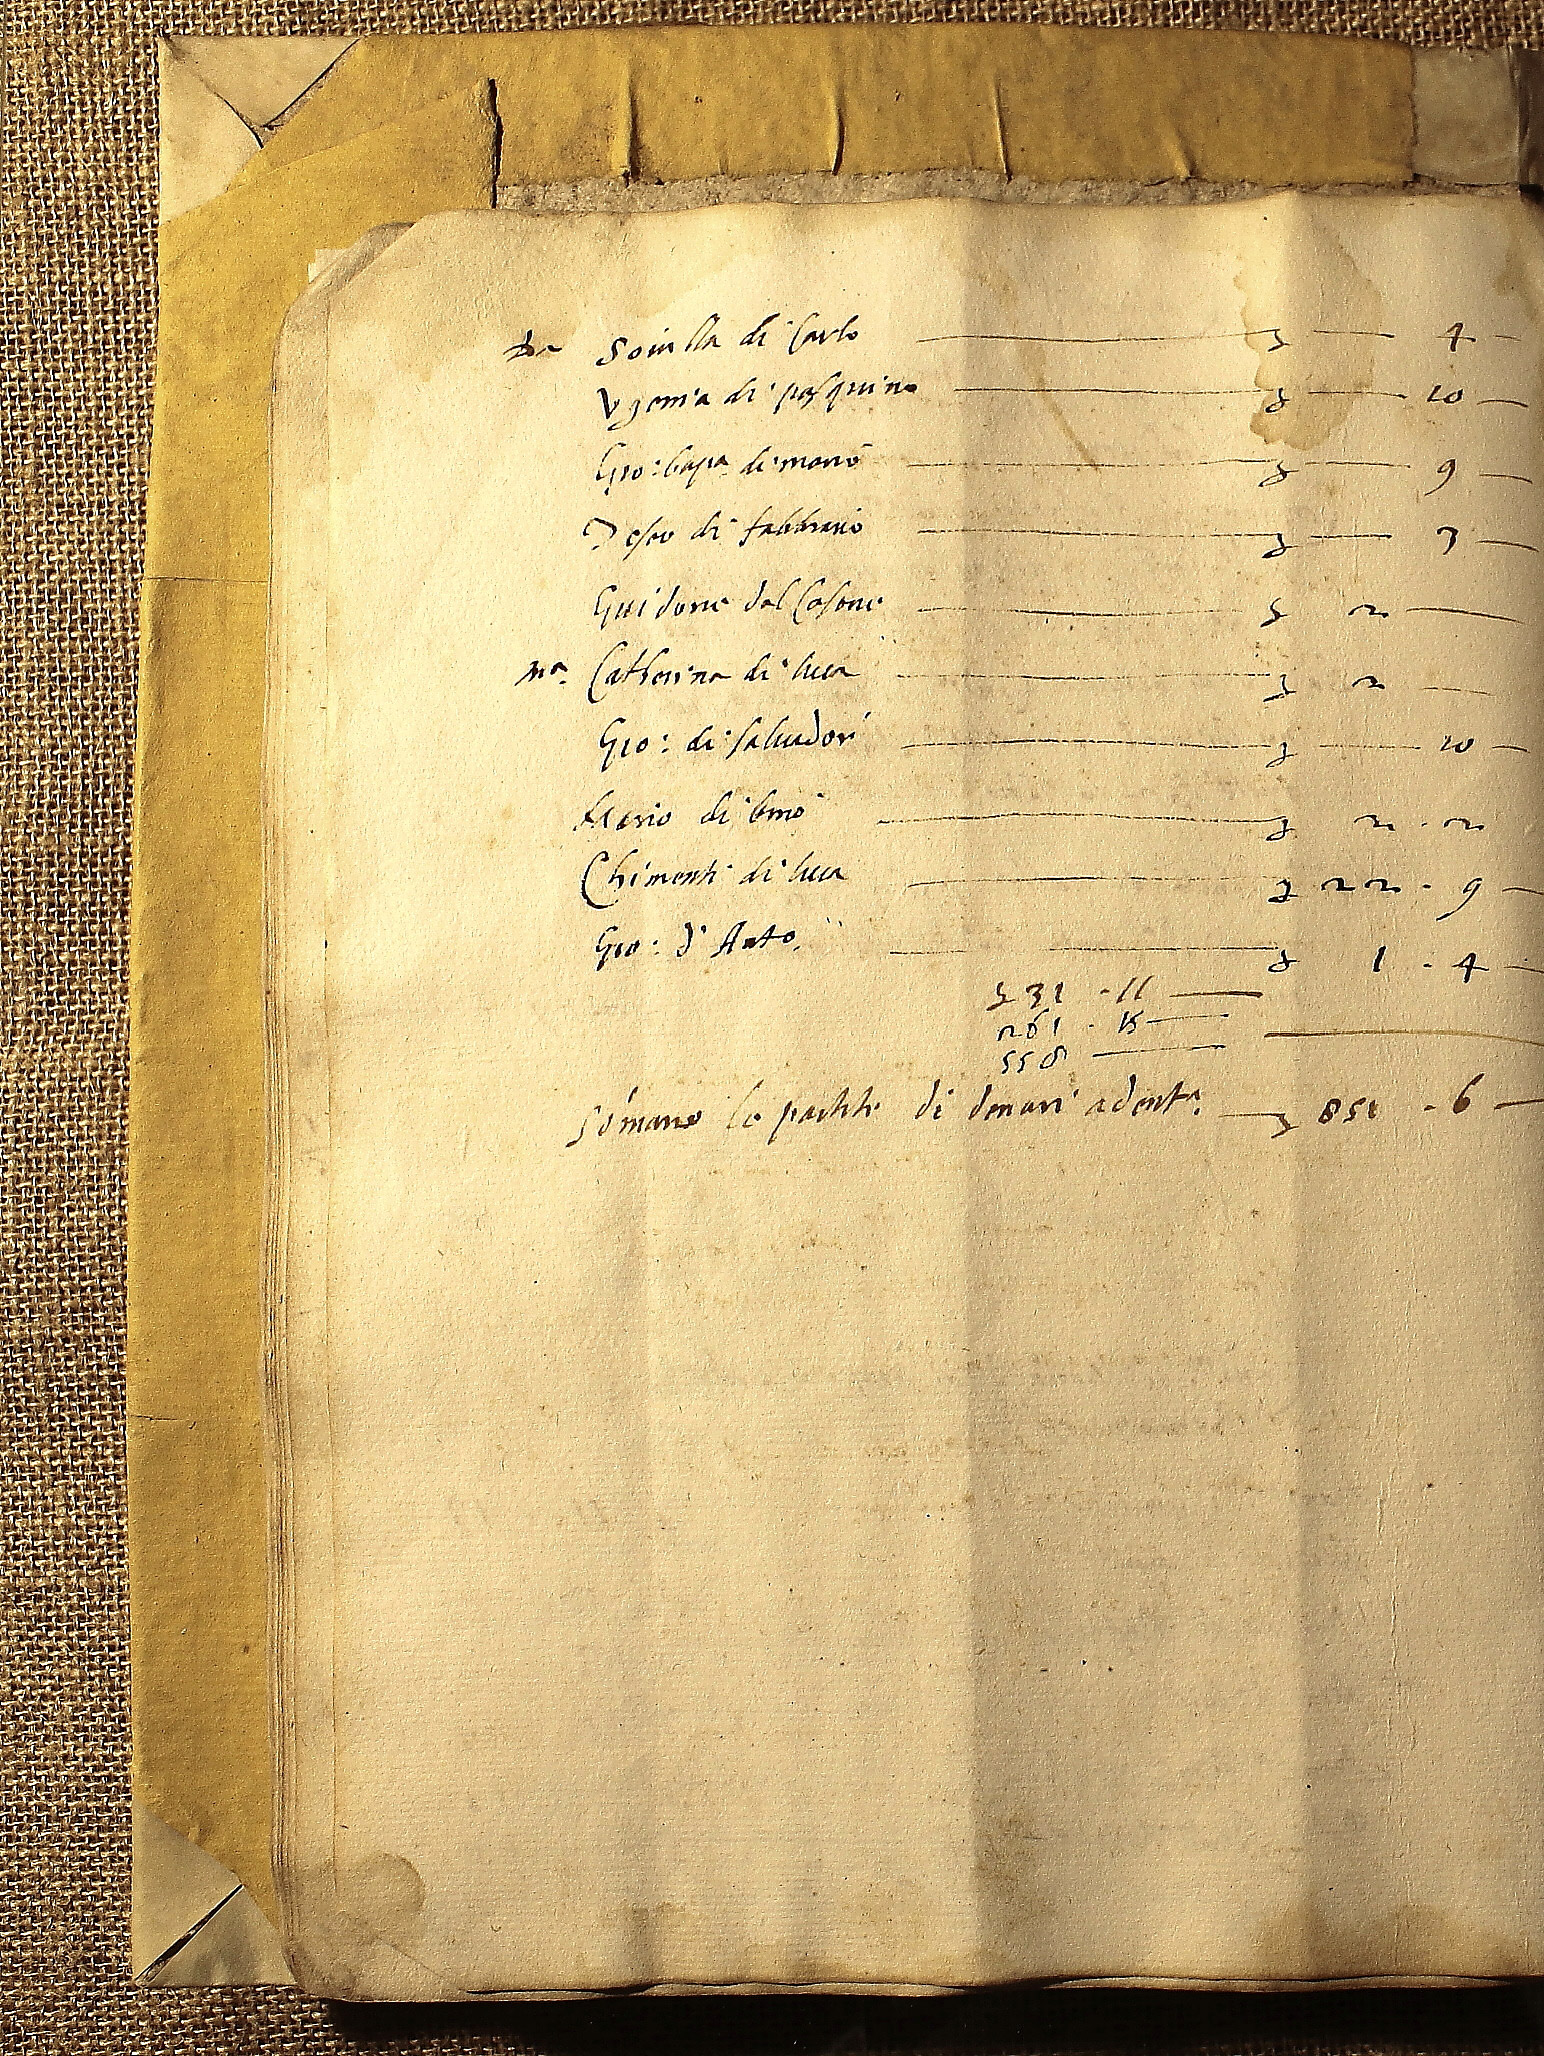 di Carlo — 4 —
Ugenia di pasquino — 10 —
Gio: bapa di mario — 9 —
di fabbrino — 3 —
Guidone dal Casone — 2 —
ma. Catherina di luca — 2 —
Gio: di salvadori — 10 —
Ilario di — 2 · 2
Chimenti di luca — 22 · 9 —
Gio: d' Anto. — 1 · 4 —
31 · 11 —
261 · 15 —
558 —
Somano le partite di denari — 851 · 6 —